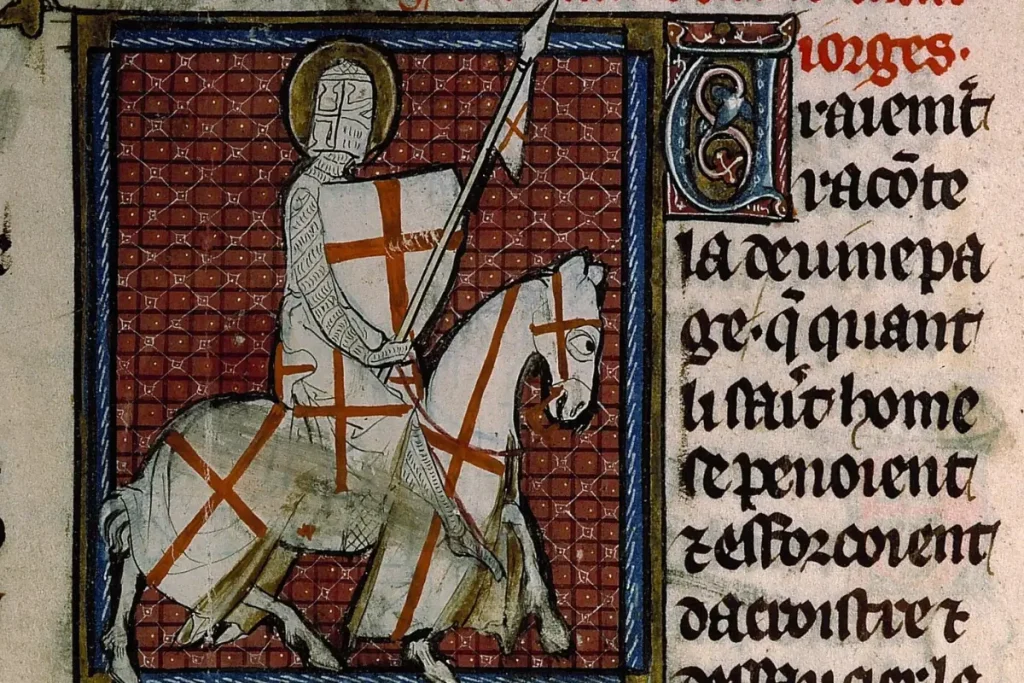 iorges.
raiemt
racõte
la deumepa
ge. q̃ quant
li saīt home
se penoient
⁊ efforcoient
dacroistre ⁊